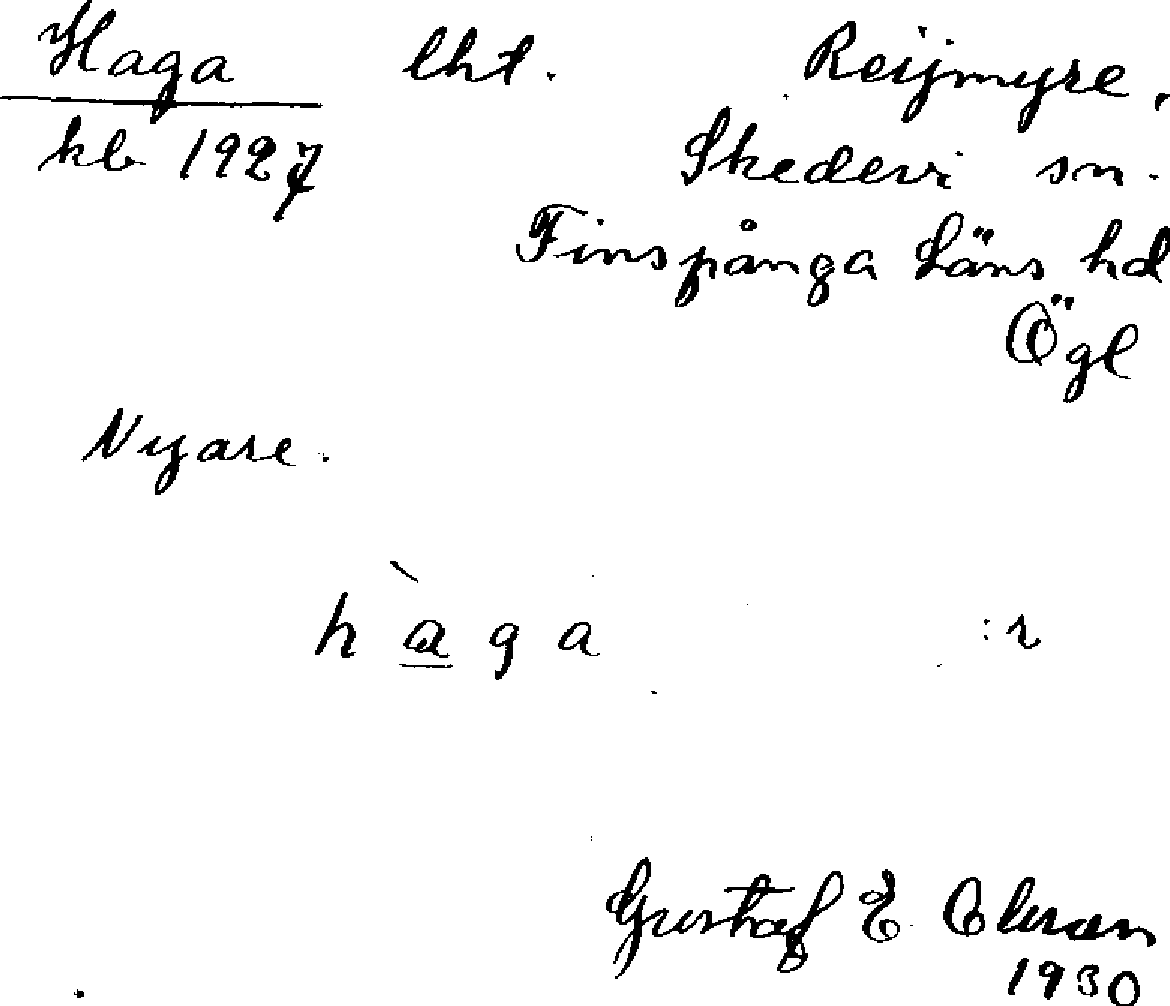 Haga lht. Reijmyre,
kb 1927 Skedevi sn.
Finspånga Läns hd
Ögl
Nyare.
hàga :r
Gustaf E.
1930